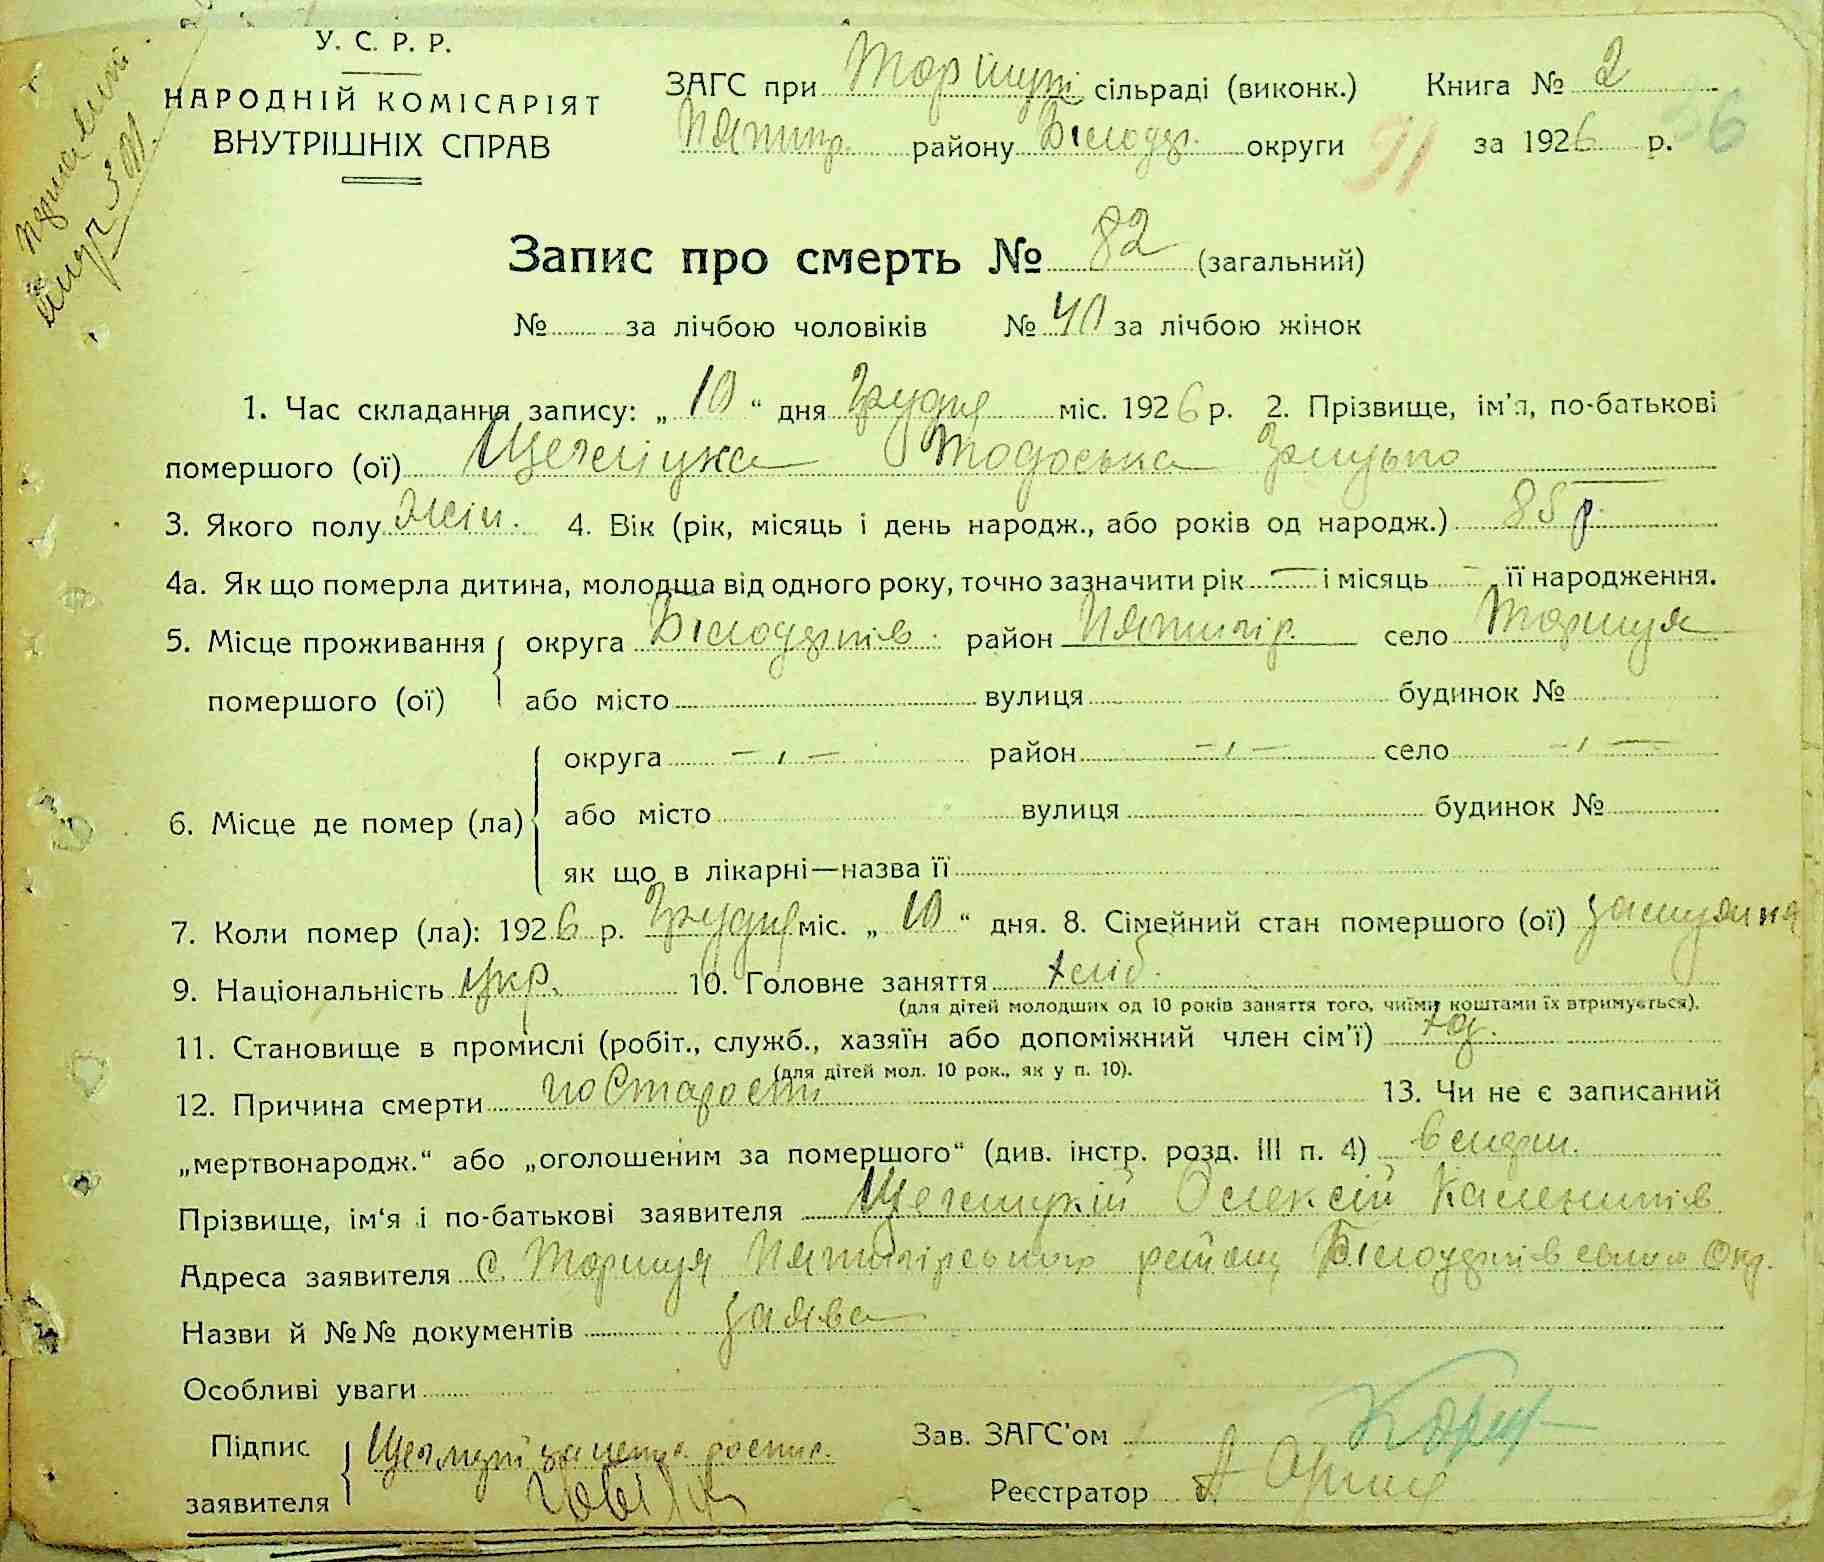 У. С. Р. Р.
НАРОДНІЙ КОМІСАРІЯТ
ВНУТРІШНІХ СПРАВ
ЗАГС при Торицькі сільраді (виконк.) Книга № 2
Пятигір. району Білоцер. округи 91 за 1926 р. 36
Запис про смерть № 82 (загальний)
№ за лічбою чоловіків № 40 за лічбою жінок
1. Час складання запису: „ 10 “ дня Грудня міс. 1926 р. 2. Прізвище, ім'я, по-батькові
помершого (ої) Тодоська Грицько
3. Якого полу жін. 4. Вік (рік, місяць і день народж., або років од народж.) 85 р.
4а. Як що померла дитина, молодша від одного року, точно зазначити рік — і місяць — її народження.
5. Місце проживання помершого (ої) округа Білоцерків. район Пятигір. село Ториця
або місто вулиця будинок №
6. Місце де помер (ла) округа — „ — район — „ — село — „ —
або місто вулиця будинок №
як що в лікарні—назва її
7. Коли помер (ла): 1926 р. Грудня міс. „ 10 “ дня. 8. Сімейний стан помершого (ої) замужня
9. Національність Укр. 10. Головне заняття хліб.
(для дітей молодших од 10 років заняття того, чиїми коштами їх втримується).
11. Становище в промислі (робіт., служб., хазяїн або допоміжний член сім'ї) хаз.
(для дітей мол. 10 рок., як у п. 10).
12. Причина смерти по старости 13. Чи не є записаний
„мертвонародж.“ або „оголошеним за помершого“ (див. інстр. розд. III п. 4)
Прізвище, ім'я і по-батькові заявителя Олексій Каленитів
Адреса заявителя с. Ториця Пятигірського району Білоцерківської Окр.
Назви й №№ документів заява
Особливі уваги
Підпис заявителя
Зав. ЗАГС'ом
Реєстратор